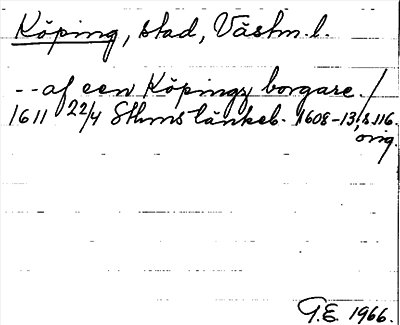 Köping, stad, Västm. l.
-- af een Köpings borgare. /
1611 22/4 Sthms tänkeb. 1608-13, s. 116.
orig.
T.E. 1966.